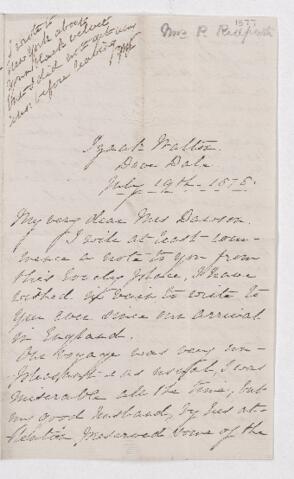 I wrote to
New York about
your black velvet
but did not get an
answer before leaving
1577
Mrs P. Redpath
Izaak Walton.
Dove Dale
July 19th. 1875.
My very dear Mrs Dawson.
I will at least com-
mence a note to you from
this lovely place, I have
wished in vain to write to
you ever since our arrival
in England.
Our voyage was very un-
pleasant as usual, I was
miserable all the time, but
my good husband, by his at-
tention preserved some of the